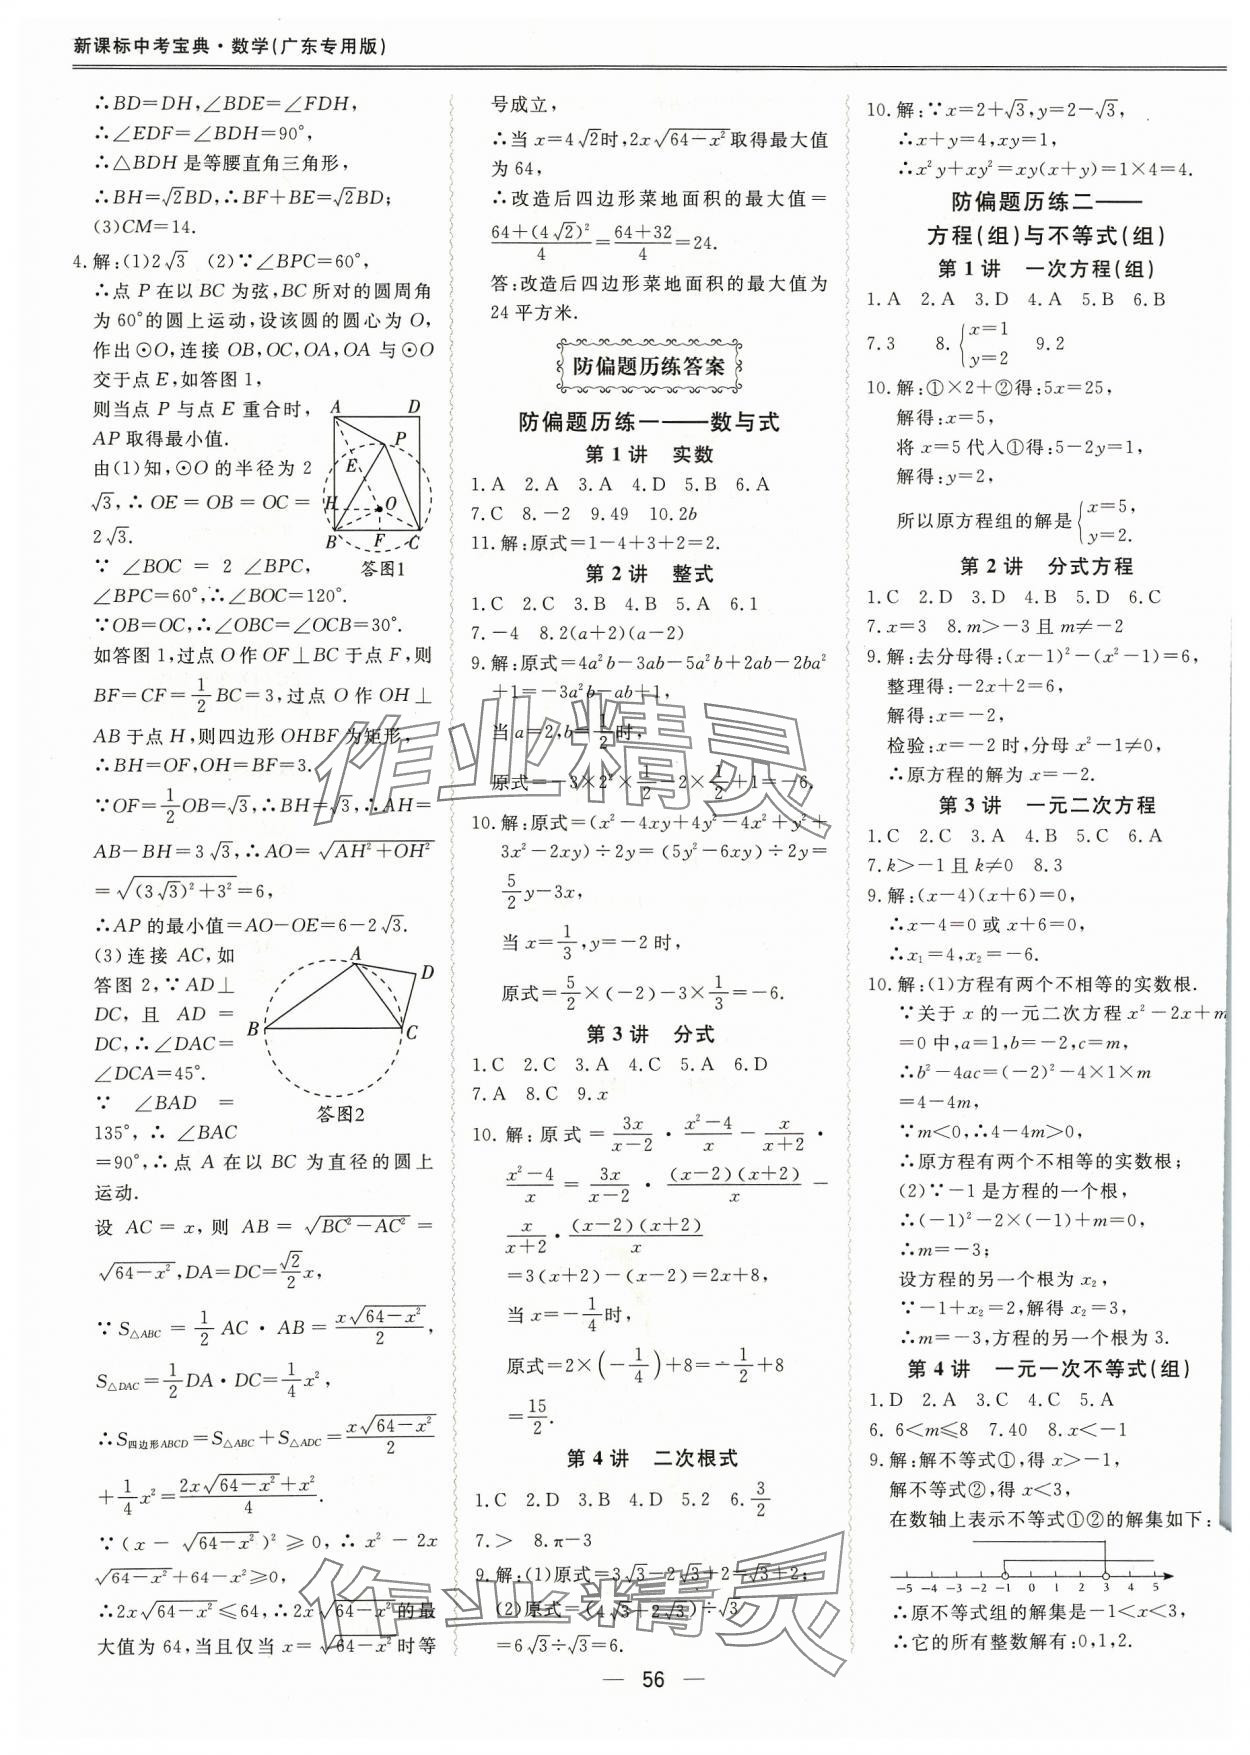 新课标中考宝典·数学(广东专用版)
∴BD=DH,∠BDE=∠FDH,
∴∠EDF=∠BDH=90°,
∴△BDH是等腰直角三角形,
∴BH=√2BD,∴BF+BE=√2BD;
(3)CM=14.
4.解:(1)2√3 (2)∵∠BPC=60°,
∴点P在以BC为弦,BC所对的圆周角
为60°的圆上运动,设该圆的圆心为O,
作出⊙O,连接OB,OC,OA,OA与⊙O
交于点E,如答图1,
则当点P与点E重合时,
AP取得最小值.
由(1)知,⊙O的半径为2
√3,∴OE=OB=OC=
2√3.
∵∠BOC=2∠BPC,
∠BPC=60°,∴∠BOC=120°.
A D P E H O B F C
答图1
∵OB=OC,∴∠OBC=∠OCB=30°.
如答图1,过点O作OF⊥BC于点F,则
BF=CF=1/2BC=3,过点O作OH⊥
AB于点H,则四边形OHBF为矩形,
∴BH=OF,OH=BF=3.
∵OF=1/2OB=√3,∴BH=√3,∴AH=
AB-BH=3√3,∴AO=√(AH²+OH²)
=√((3√3)²+3²)=6,
∴AP的最小值=AO-OE=6-2√3.
(3)连接AC,如
答图2,∵AD⊥
DC,且AD=
DC,∴∠DAC=
∠DCA=45°.
∵∠BAD=
135°,∴∠BAC
A D B C
答图2
=90°,∴点A在以BC为直径的圆上
运动.
设AC=x,则AB=√(BC²-AC²)=
√(64-x²),DA=DC=√2/2x,
∵S△ABC=1/2AC·AB=x√(64-x²)/2,
S△DAC=1/2DA·DC=1/4x²,
∴S四边形ABCD=S△ABC+S△ADC=x√(64-x²)/2
+1/4x²=(2x√(64-x²)+x²)/4.
∵(x-√(64-x²))²≥0,∴x²-2x
√(64-x²)+64-x²≥0,
∴2x√(64-x²)≤64,∴2x√(64-x²)的最
大值为64,当且仅当x=√(64-x²)时等
号成立,
∴当x=4√2时,2x√(64-x²)取得最大值
为64,
∴改造后四边形菜地面积的最大值=
(64+(4√2)²)/4=(64+32)/4=24.
答:改造后四边形菜地面积的最大值为
24平方米.
防偏题历练答案
防偏题历练一——数与式
第1讲 实数
1.A 2.A 3.A 4.D 5.B 6.A
7.C 8.-2 9.49 10.2b
11.解:原式=1-4+3+2=2.
第2讲 整式
1.C 2.C 3.B 4.B 5.A 6.1
7.-4 8.2(a+2)(a-2)
9.解:原式=4a²b-3ab-5a²b+2ab-2ba²
+1=-3a²b-ab+1,
当a=2,b=1/2时,
原式=-3×2²×1/2-2×1/2+1=-6.
10.解:原式=(x²-4xy+4y²-4x²+y²+
3x²-2xy)÷2y=(5y²-6xy)÷2y=
5/2y-3x,
当x=1/3,y=-2时,
原式=5/2×(-2)-3×1/3=-6.
第3讲 分式
1.C 2.C 3.A 4.C 5.A 6.D
7.A 8.C 9.x
10.解:原式=3x/(x-2)·(x²-4)/x-x/(x+2)·
(x²-4)/x=3x/(x-2)·(x-2)(x+2)/x-
x/(x+2)·(x-2)(x+2)/x
=3(x+2)-(x-2)=2x+8,
当x=-1/4时,
原式=2×(-1/4)+8=-1/2+8
=15/2.
第4讲 二次根式
1.C 2.D 3.B 4.D 5.2 6.3/2
7.> 8.π-3
9.解:(1)原式=3√3-2√3+2=√3+2;
(2)原式=(4√3+2√3)÷√3
=6√3÷√3=6.
10.解:∵x=2+√3,y=2-√3,
∴x+y=4,xy=1,
∴x²y+xy²=xy(x+y)=1×4=4.
防偏题历练二——
方程(组)与不等式(组)
第1讲 一次方程(组)
1.A 2.A 3.D 4.A 5.B 6.B
7.3 8.{x=1 y=2 9.2
10.解:①×2+②得:5x=25,
解得:x=5,
将x=5代入①得:5-2y=1,
解得:y=2,
所以原方程组的解是{x=5, y=2.
第2讲 分式方程
1.C 2.D 3.D 4.B 5.D 6.C
7.x=3 8.m>-3且m≠-2
9.解:去分母得:(x-1)²-(x²-1)=6,
整理得:-2x+2=6,
解得:x=-2,
检验:x=-2时,分母x²-1≠0,
∴原方程的解为x=-2.
第3讲 一元二次方程
1.C 2.C 3.A 4.B 5.C 6.A
7.k>-1且k≠0 8.3
9.解:(x-4)(x+6)=0,
∴x-4=0或x+6=0,
∴x₁=4,x₂=-6.
10.解:(1)方程有两个不相等的实数根.
∵关于x的一元二次方程x²-2x+m
=0中,a=1,b=-2,c=m,
∴b²-4ac=(-2)²-4×1×m
=4-4m,
∵m<0,∴4-4m>0,
∴原方程有两个不相等的实数根;
(2)∵-1是方程的一个根,
∴(-1)²-2×(-1)+m=0,
∴m=-3;
设方程的另一个根为x₂,
∵-1+x₂=2,解得x₂=3,
∴m=-3,方程的另一个根为3.
第4讲 一元一次不等式(组)
1.D 2.A 3.C 4.C 5.A
6. 6<m≤8 7.40 8.x<-1
9.解:解不等式①,得x>-1,
解不等式②,得x<3,
在数轴上表示不等式①②的解集如下:
-5 -4 -3 -2 -1 0 1 2 3 4 5
∴原不等式组的解集是-1<x<3,
∴它的所有整数解有:0,1,2.
— 56 —
作业精灵
作业精灵